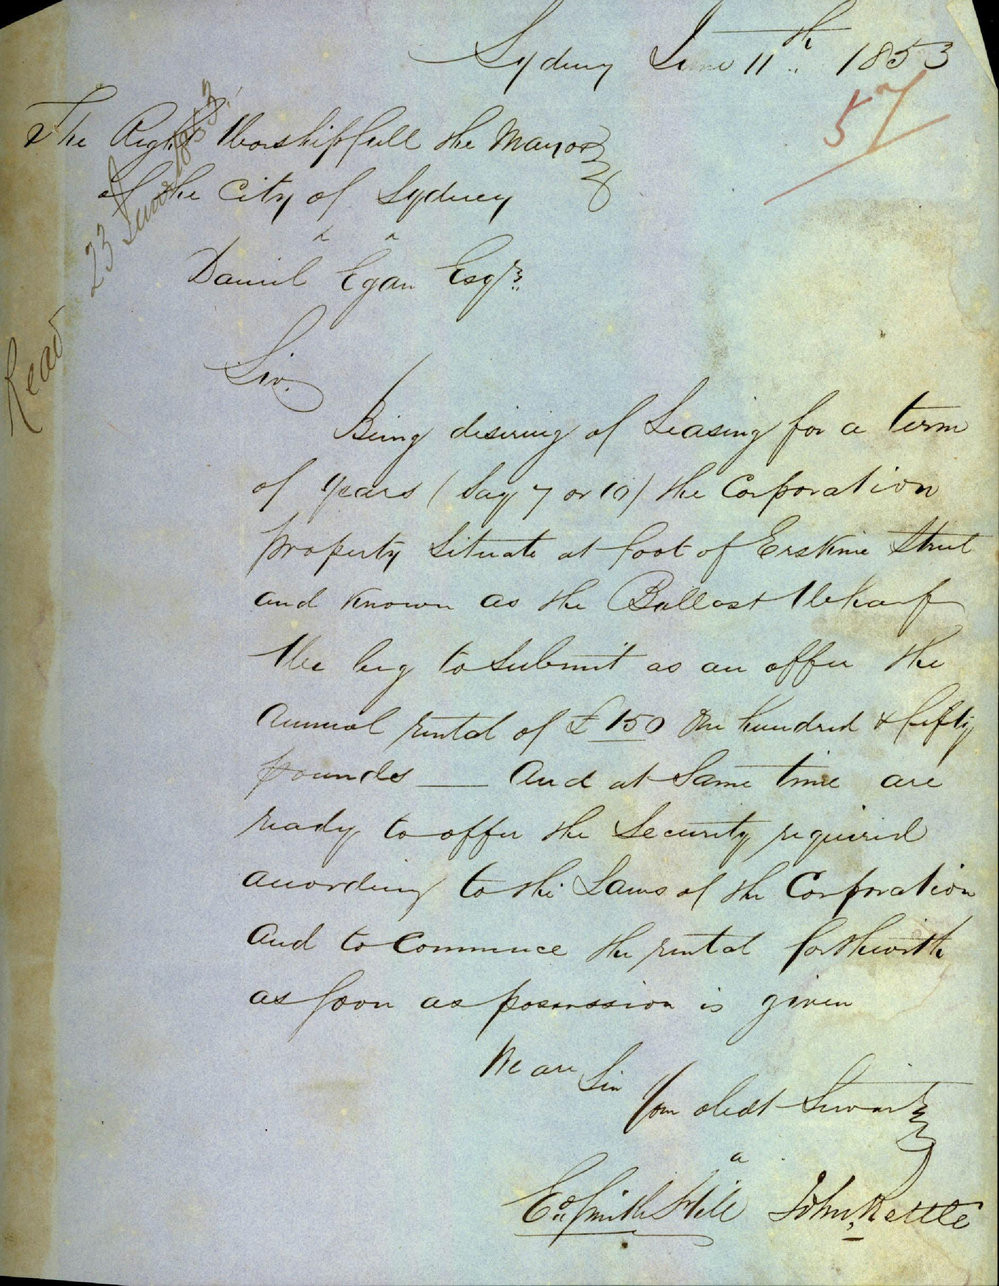 Sydney June 11th 1853
57
To The Right Worshipfull the Mayor
of the City of Sydney
Daniel Egan Esqr.
Read 23 June 1853.
Sir.
Being desiring of Leasing for a term
of years (Say 7 or 10) the Corporation
property Situate at foot of Erskine Street
and known as the Ballast Wharf
We beg to Submit as an offer the
annual rental of £150 One hundred & fifty
pounds — And at Same time are
ready to offer the Security required
according to the Laws of the Corporation
and to Commence the rental forthwith
as soon as possession is given
We are Sir
Your obedt Servants
Ed Smith Hill John Kettle